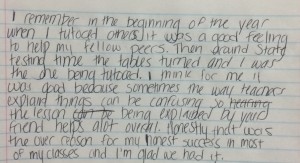 I remember in the beginning of the year
when I tutored others it was a good feeling
to help my fellow peers. Then around State
testing time the tables turned and I was
the one being tutored. I think for me it
was good because sometimes the way teachers
explaint things can be confusing so hearing
the lesson being explained by your
friend helps alot overall. Honestly that was
the over reason for my honest success in most
of my classes and I'm glad we had it.